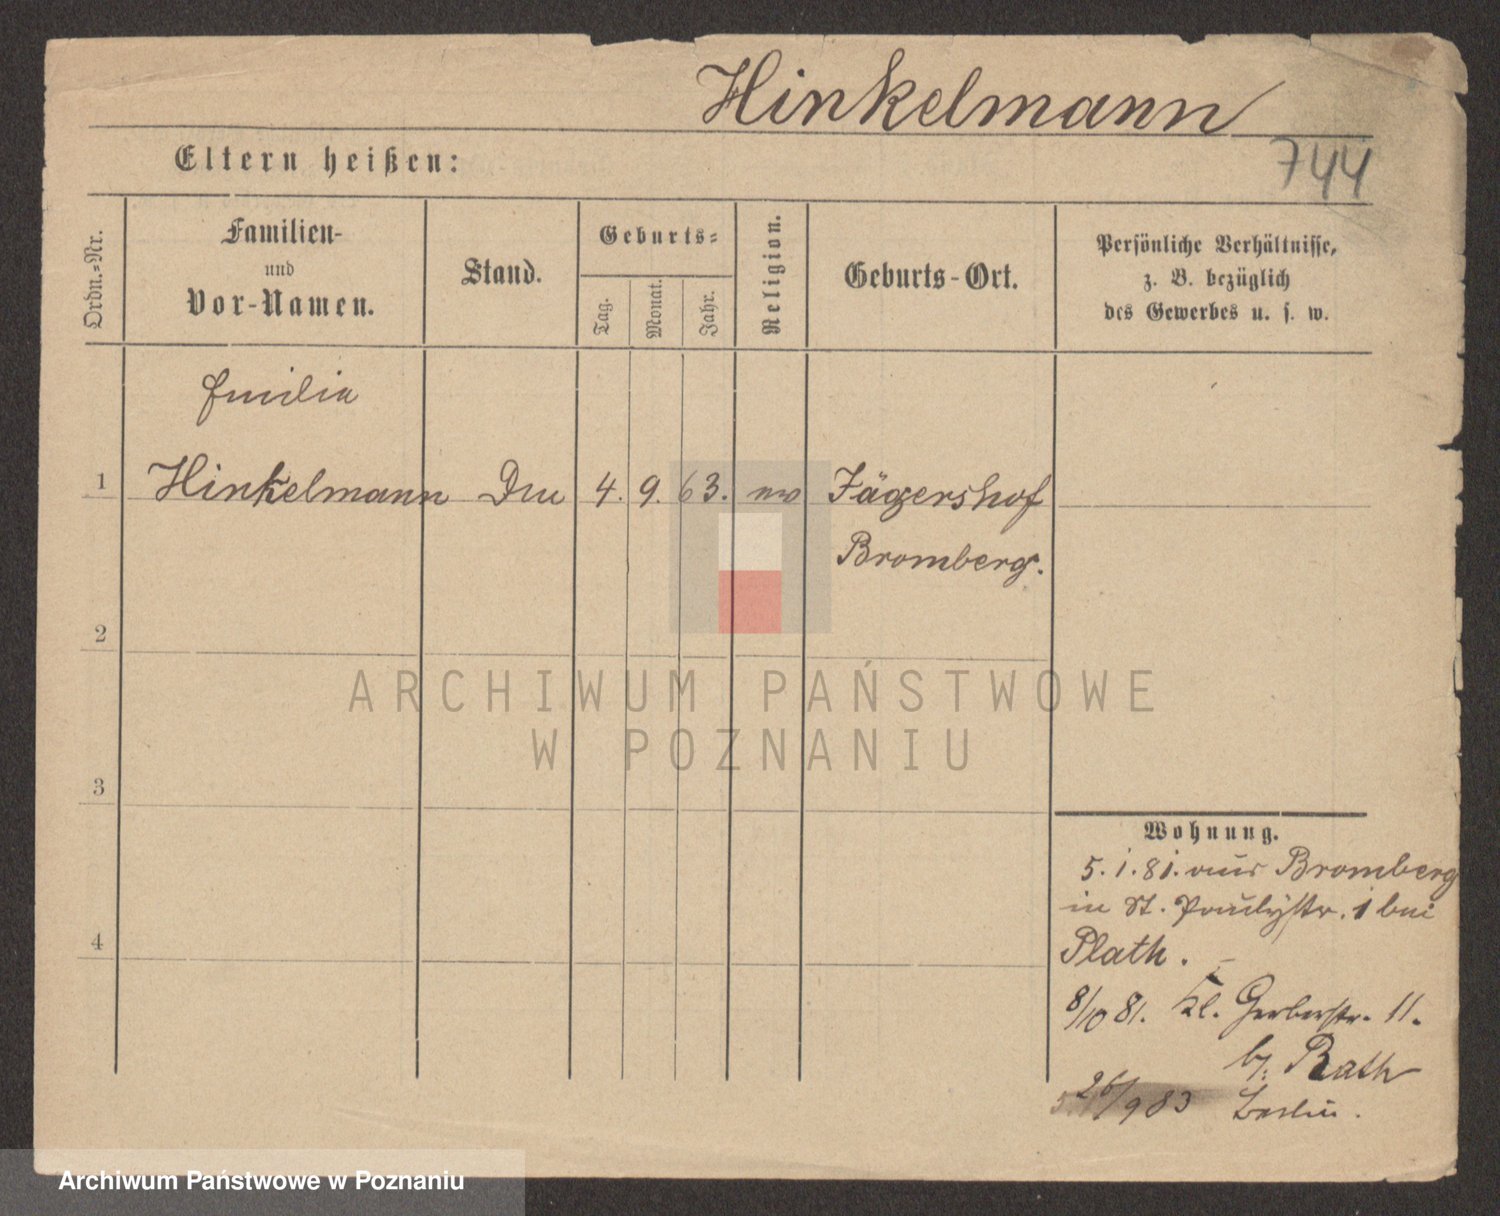 Hinkelmann
744
Eltern heißen:
Ordn.-Nr.
Familien-
und
Vor-Namen.
Stand.
Geburts-
Tag.
Monat.
Jahr.
Religion.
Geburts-Ort.
Persönliche Verhältnisse,
z. B. bezüglich
des Gewerbes u. s. w.
Emilie
1 Hinkelmann 4. 9. 63. ev Jägershof
Bromberg.
2
3
4
Wohnung.
5.1.81. aus Bromberg
in St. Paulystr. 1 bei
Plath.
8/10 81. Kl. Gerberstr. 11.
b. Rath
26/9 83 Berlin.
ARCHIWUM PAŃSTWOWE
W POZNANIU
Archiwum Państwowe w Poznaniu